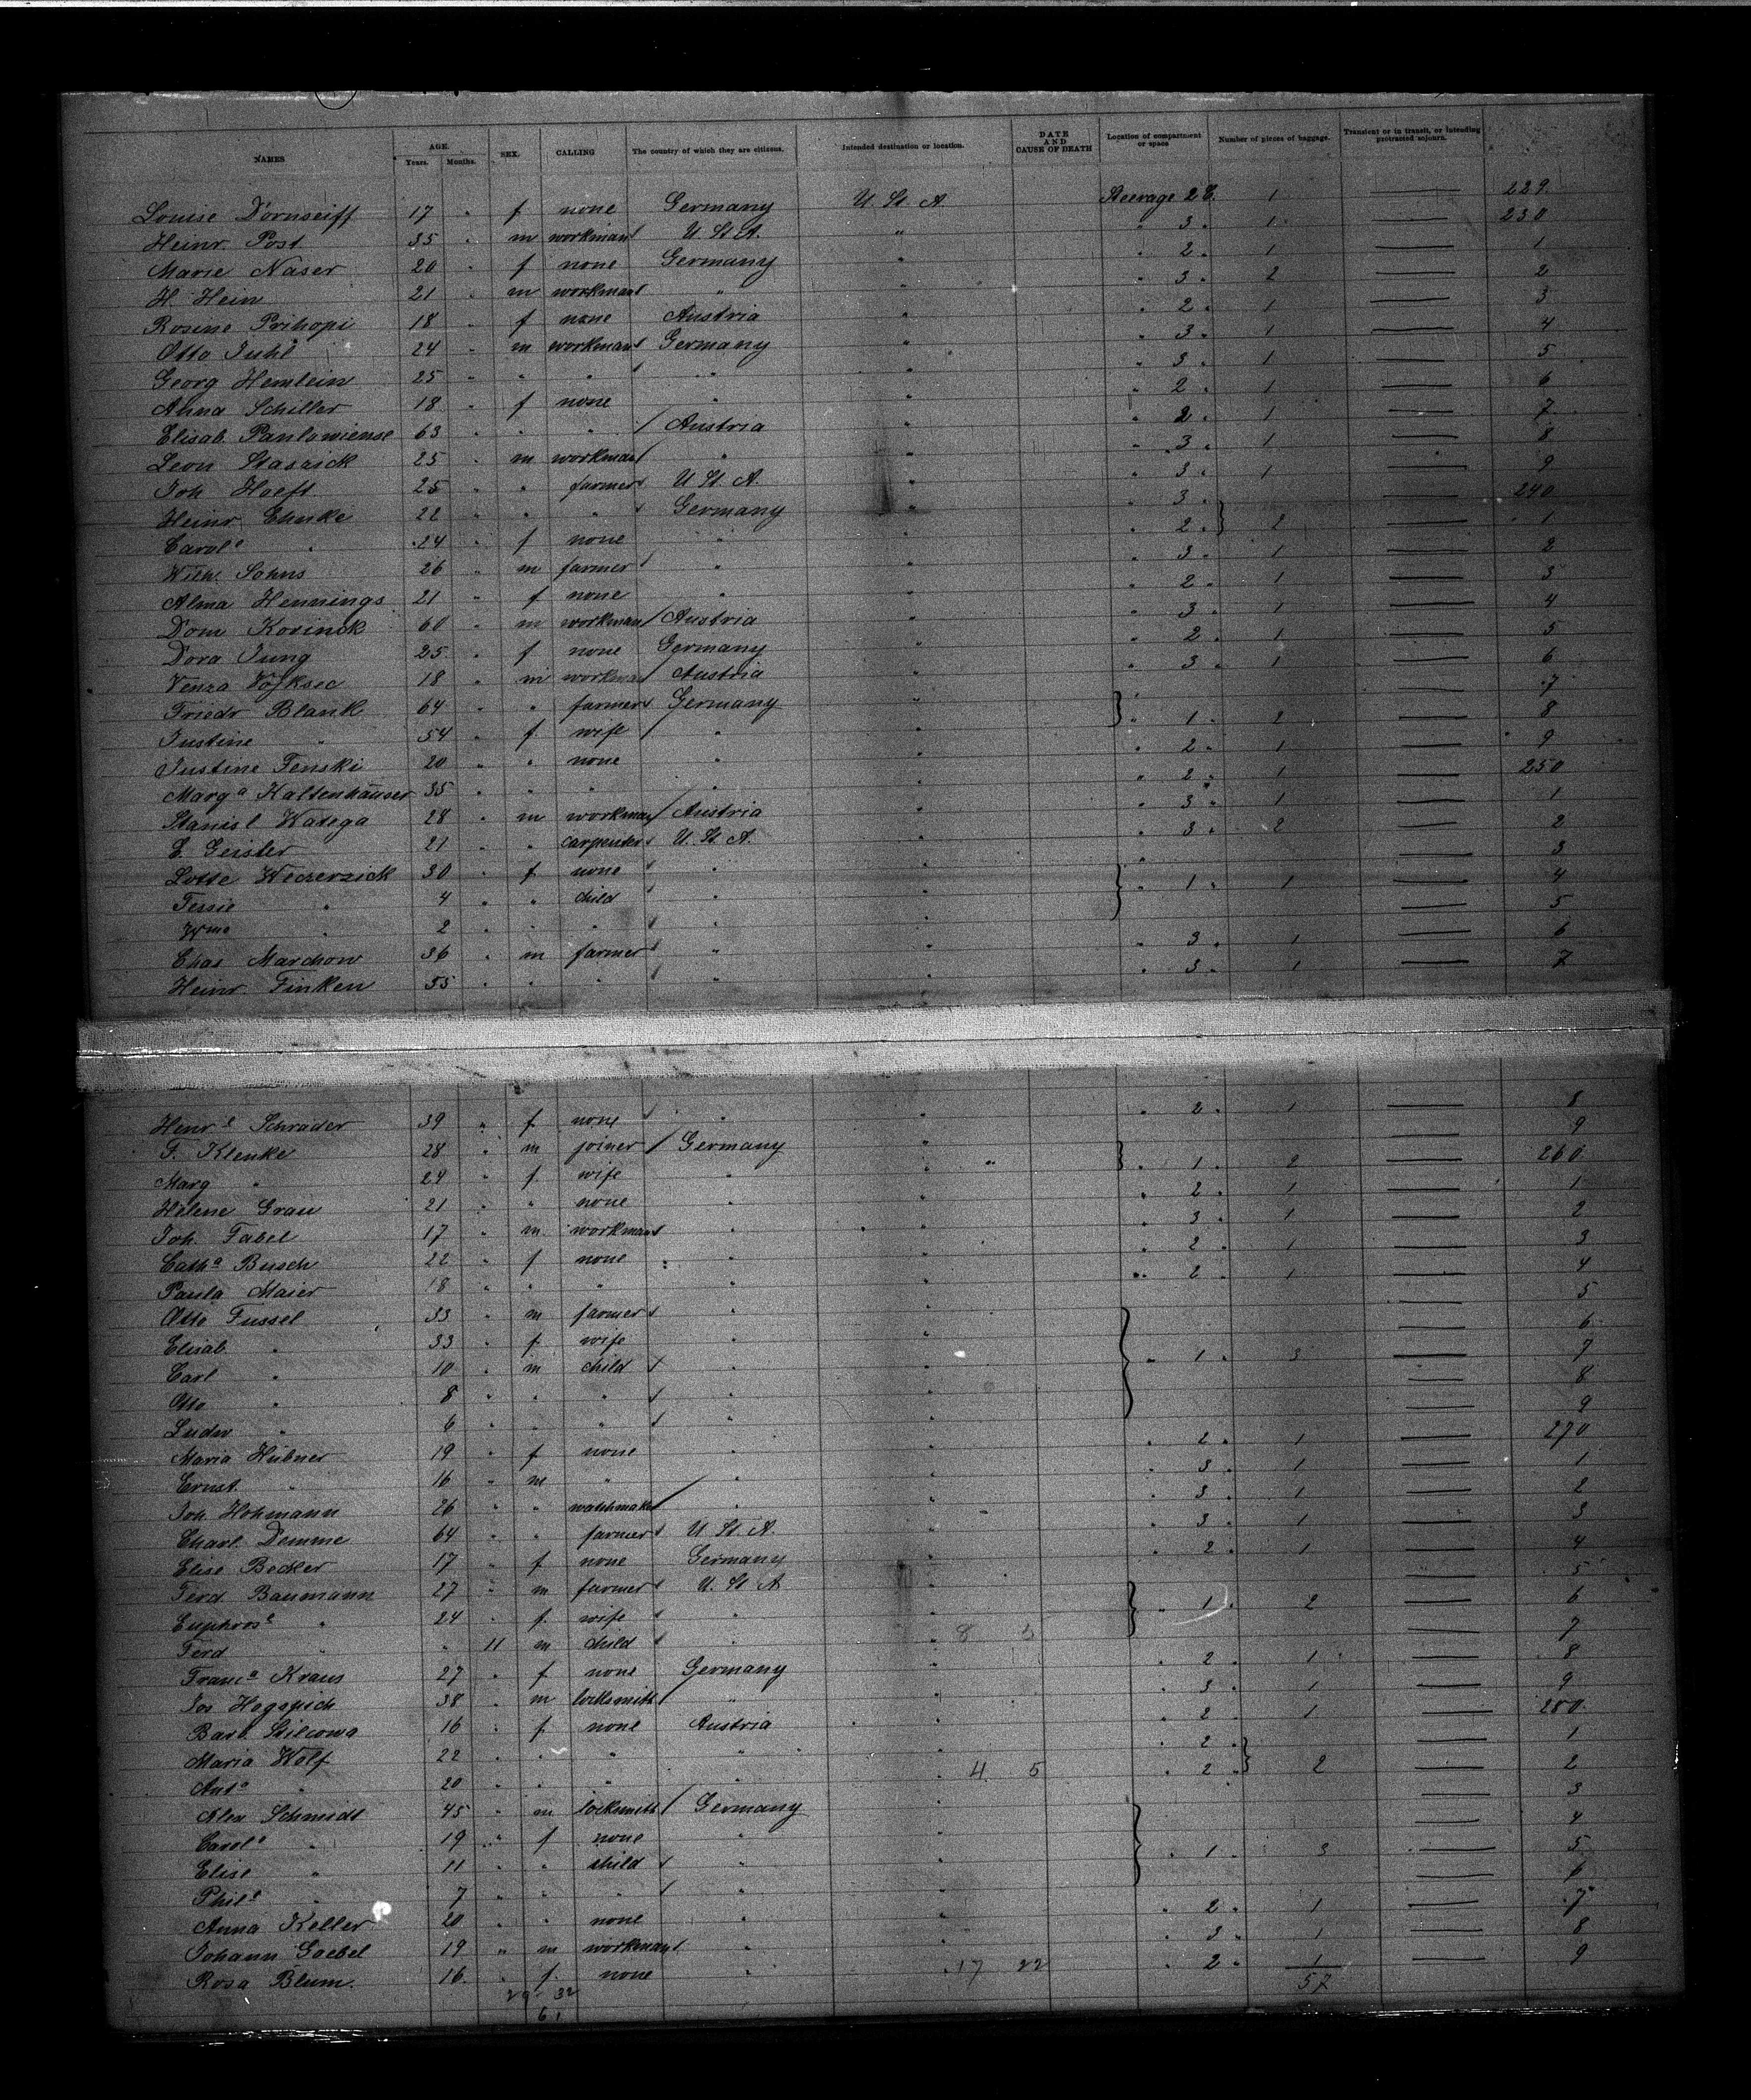 NAMES AGE. Years. Months. SEX. CALLING The country of which they are citizens. Intended destination or location. DATE AND CAUSE OF DEATH Location of compartment or space Number of pieces of baggage. Transient or in transit, or intending protracted sojourn.
Louise Dornseiff 17 " f none Germany U. St. A. Steerage 2 C. 1 — 229
Heinr. Post 35 " m workman U. St. A. " " 3 " 1 — 230
Marie Naser 20 " f none Germany " " 2 " 1 — 1
H. Hein 21 " m workman " " " 3 " 2 — 2
Rosine Prihopi 18 " f none Austria " " 2 " 1 — 3
Otto Juhl 24 " m workman Germany " " 3 " 1 — 4
Georg Hemlein 25 " " " " " " 3 " 1 — 5
Anna Schiller 18 " f none " " " 2 " 1 — 6
Elisab. Panlowiense 63 " " " Austria " " 2 " 1 — 7
Leon Staszick 25 " m workman " " " 3 " 1 — 8
Joh. Hoeft 25 " " farmer U. St. A. " " 3 " 1 — 9
Heinr. Ehnke 22 " " " Germany " " 3 " — 240
Carole " 24 " f none " " " 2 " 2 — 1
Wilh. Sohns 26 " m farmer " " " 3 " 1 — 2
Alma Hennings 21 " f none " " " 2 " 1 — 3
Dom Korinck 60 " m workman Austria " " 3 " 1 — 4
Dora Jung 25 " f none Germany " " 2 " 1 — 5
Venza 18 " m workman Austria " " 3 " 1 — 6
Friedr Blank 64 " " farmer Germany " " — 7
Justine " 54 " f wife " " " 1 " 2 — 8
Justine Fenski 20 " " none " " " 2 " 1 — 9
Marga Kaltenhäuser 35 " " " " " " 2 " 1 — 250
Stanisl Watega 28 " m workman Austria " " 3 " 1 — 1
E. Geister 21 " " carpenter U. St. A. " " 3 " 2 — 2
Lotte Weczerzick 30 " f none " " " — 3
Tessie " 4 " " child " " " 1 " 1 — 4
" 2 " " " " " — 5
Chas Marchow 36 " m farmer " " " 3 " 1 — 6
Heinr. Finken 55 " " " " " " 3 " 1 — 7
Henre Schrader 39 " f none " " " 2 " 1 — 8
F. Klenke 28 " m joiner Germany " — 9
Marg " 24 " f wife " " " 1 " 2 — 260
Helene Grau 21 " " none " " " 2 " 1 — 1
Joh. Fabel 17 " m workman " " " 3 " 1 — 2
Catha Busch 22 " f none " " " 2 " 1 — 3
Paula Maier 18 " " " " " " 2 " 1 — 4
Otto Fussel 33 " m farmer " " — 5
Elisab. " 33 " f wife " " — 6
Carl " 10 " m child " " " 1 " 3 — 7
Otto " 8 " " " " " — 8
Ludw " 6 " " " " " — 9
Maria Hübner 19 " f none " " " 2 " 1 — 270
Ernst " 16 " m " " " " 3 " 1 — 1
Joh. Hohmann 26 " " watchmaker " " " 3 " 1 — 2
Charl. Demme 64 " " farmer U. St. A. " " 3 " 1 — 3
Elise Becker 17 " f none Germany " " 2 " 1 — 4
Ferd. Baumann 27 " m farmer U. St. A. " — 5
Euphrose " 24 " f. wife " " " 1 " 2 — 6
Ferd " " 11 m child " " 8 — 7
Franca Kraus 27 " f none Germany " " 2 " 1 — 8
Jos Hegspich 38 " m locksmith " " " 3 " 1 — 9
Barb. Stilcowa 16 " f none Austria " " 2 " 1 — 280
Maria Wolf 22 " " " " " " 2 " — 1
Anta " 20 " " " " " 4 5 " 2 " 2 — 2
Alex Schmidt 45 " m locksmith Germany " — 3
Carole " 19 " f none " " — 4
Elise " 11 " " child " " " 1 " 3 — 5
Phile " 7 " " " " " — 6
Anna Keller 20 " " none " " " 2 " 1 — 7
Johann Goebel 19 " m workman " " " 3 " 1 — 8
Rosa Blum. 16 " f. none " " 17 22 " 2 " 1 — 9
29 - 32 57
61